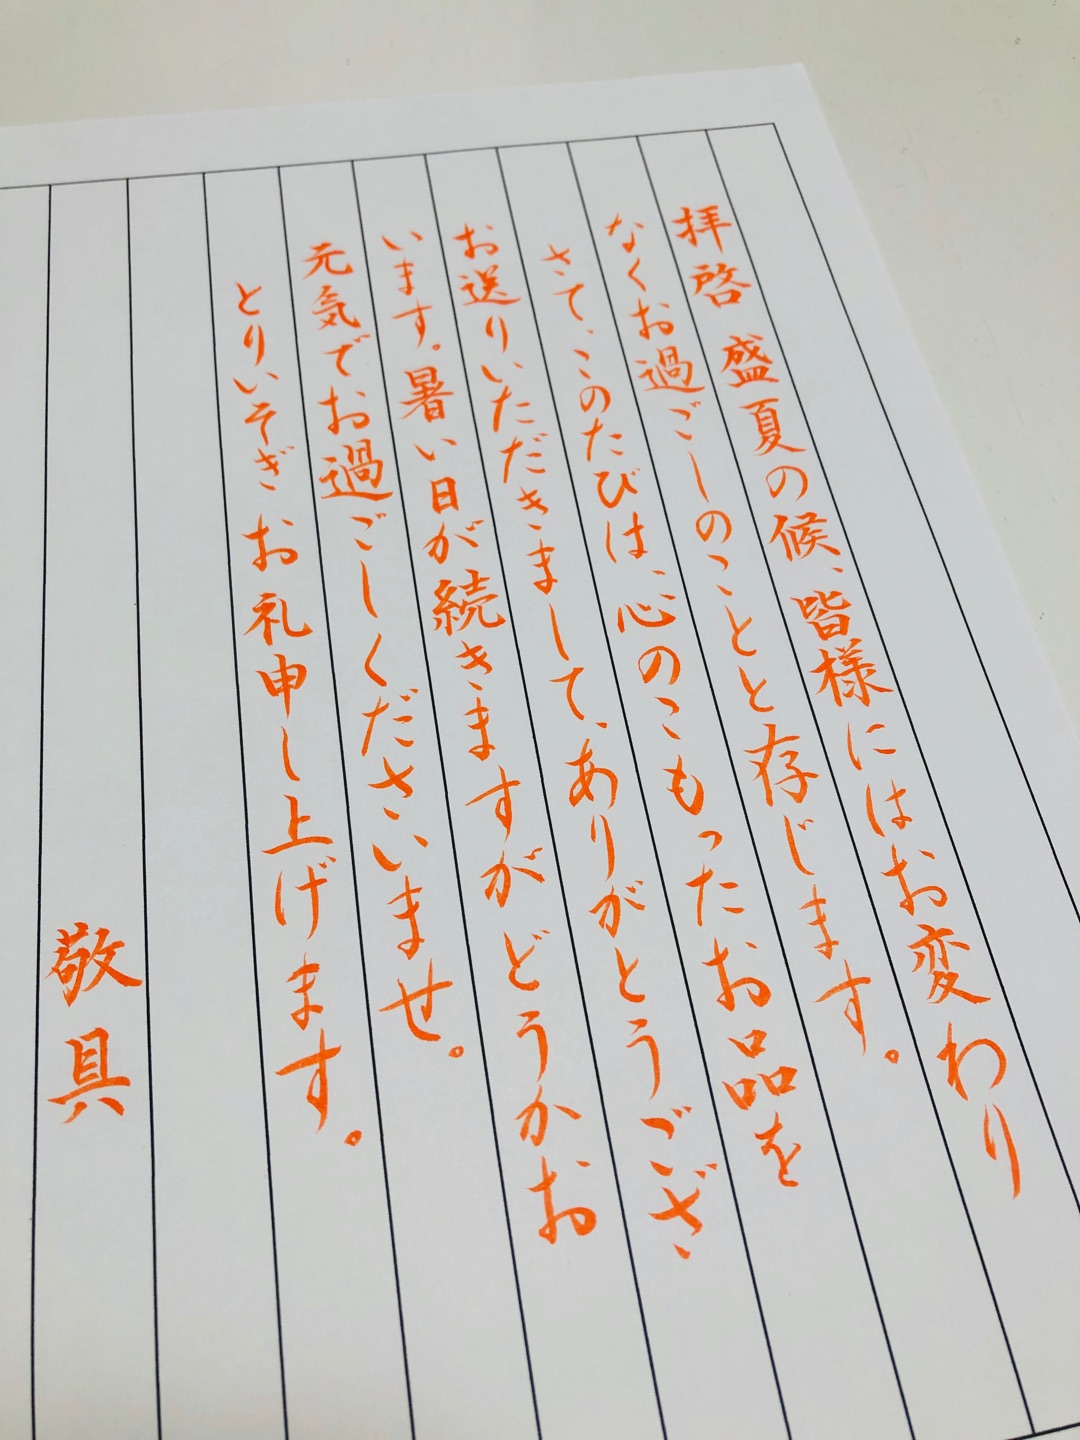 拝啓 盛夏の候、皆様にはお変わり
なくお過ごしのことと存じます。
さて、このたびは、心のこもったお品を
お送りいただきまして、ありがとうござ
います。暑い日が続きますがどうかお
元気でお過ごしくださいませ。
とりいそぎお礼申し上げます。
敬具